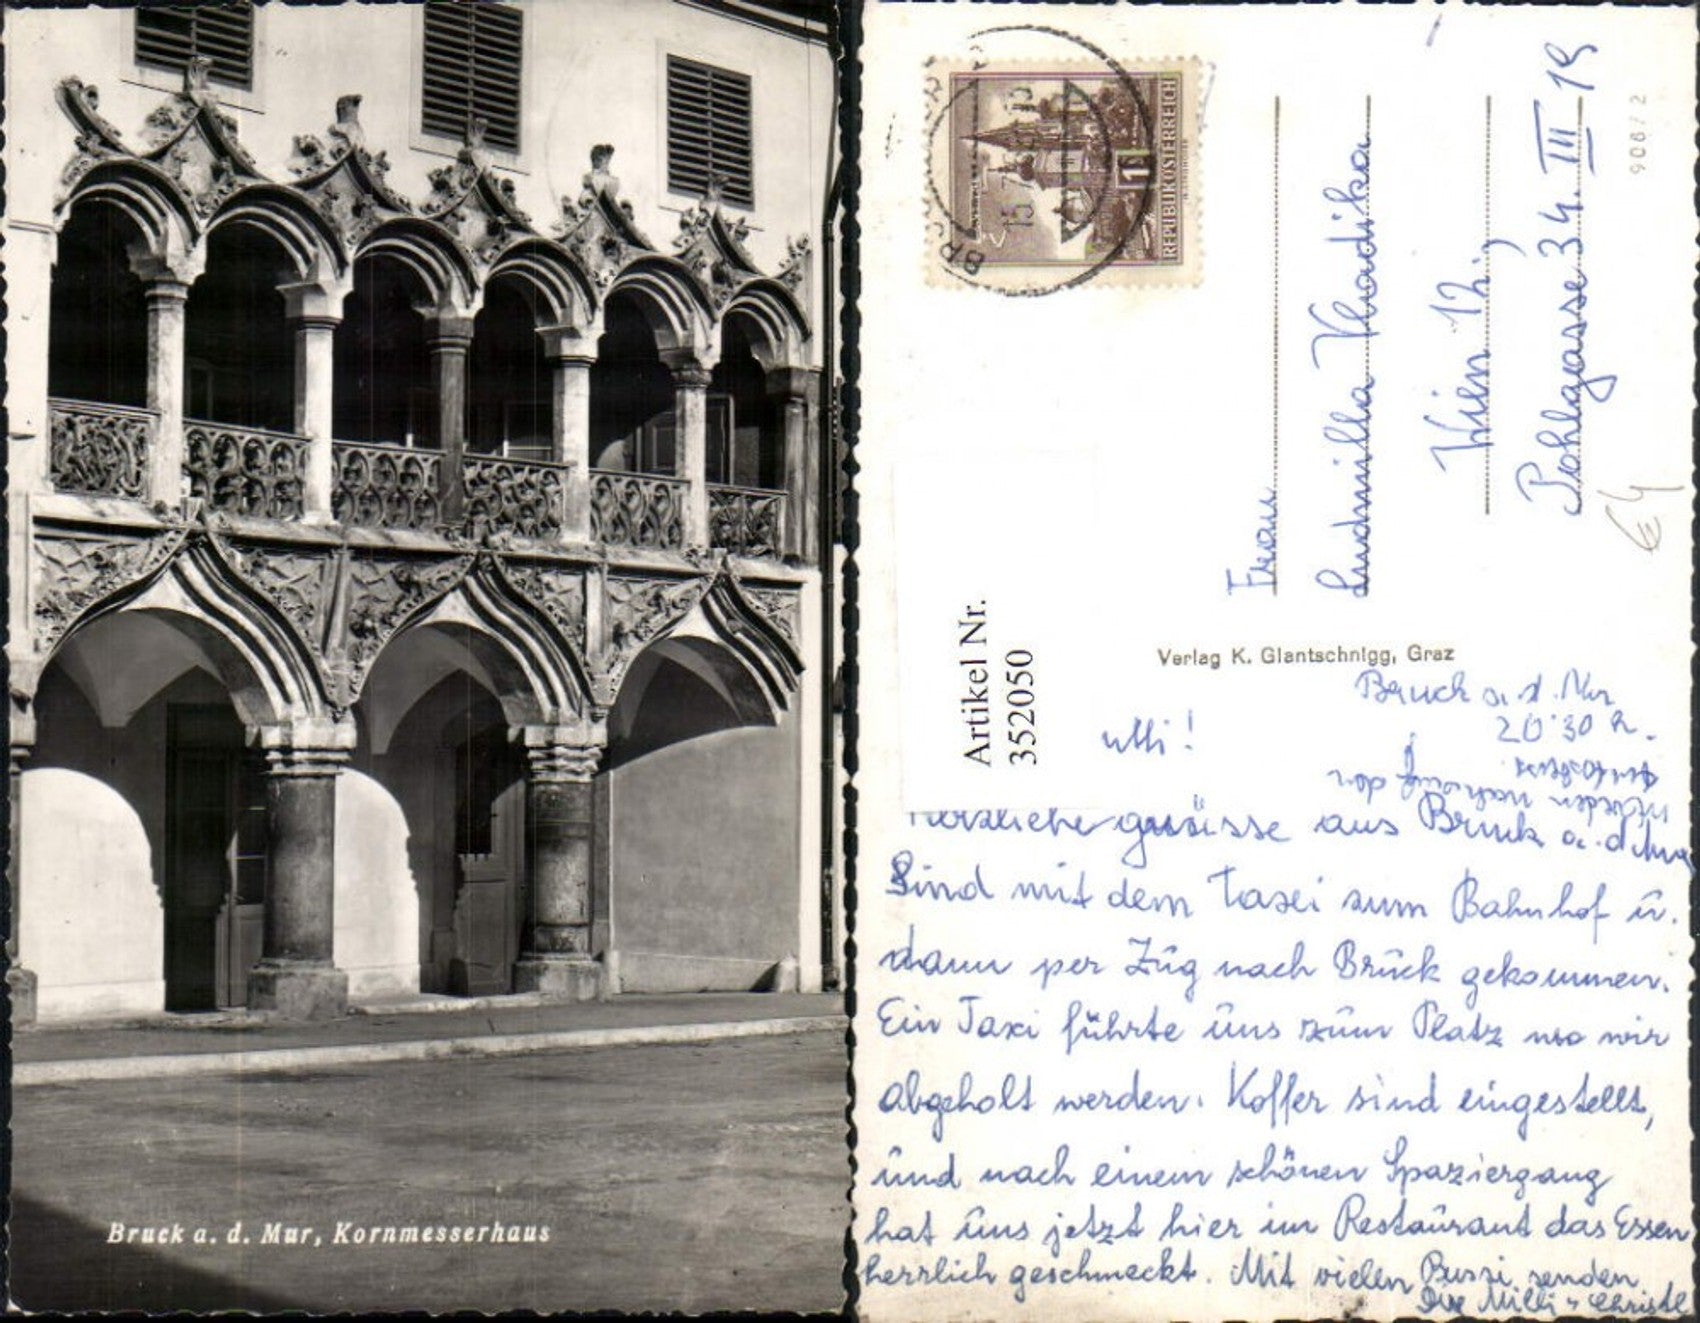 Bruck a. d. Mur, Kornmesserhaus
REPUBLIK ÖSTERREICH
1
BRUCK
15
Frau
Ludmilla Vladika
Wien 12.,
Pohlgasse 34. III 19
9087 2
€ 4
Artikel Nr.
352050
Verlag K. Glantschnigg, Graz
Bruck a. d. Mur
20'30 h.
Mutti!
Herzliche grüsse aus Bruck a. d Mur
Sind mit dem Taxi zum Bahnhof u.
dann per Zug nach Bruck gekommen.
Ein Taxi führte uns zum Platz wo wir
abgeholt werden. Koffer sind eingestellt,
und nach einem schönen Spaziergang
hat uns jetzt hier im Restaurant das Essen
herrlich geschmeckt. Mit vielen Bussi senden
Dir Milli u Christl